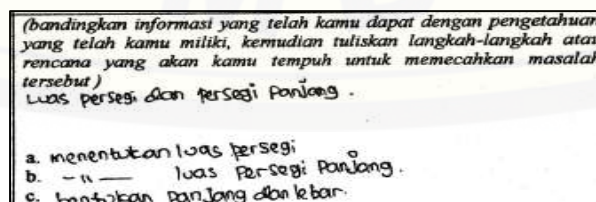 (bandingkan informasi yang telah kamu dapat dengan pengetahuan
yang telah kamu miliki, kemudian tuliskan langkah-langkah atau
rencana yang akan kamu tempuh untuk memecahkan masalah
tersebut)
Luas persegi dan persegi panjang.
a. menentukan luas persegi
b. –〃— luas persegi panjang.
c. panjang dan lebar.